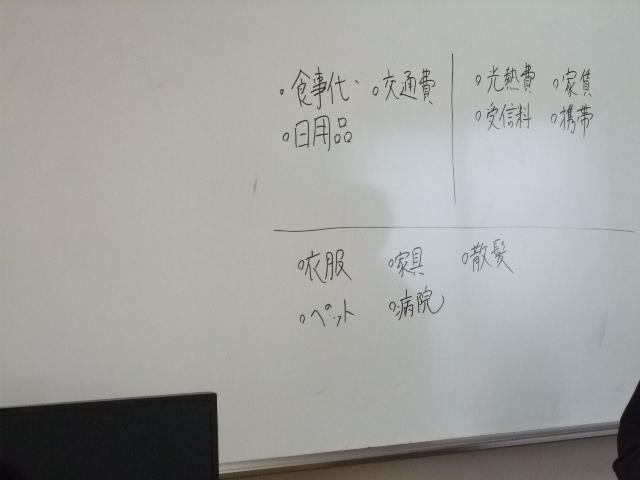 。食事代、 。交通費
。日用品
。光熱費 。家賃
。受信料 。携帯
。衣服 。家具 。散髪
。ペット 。病院